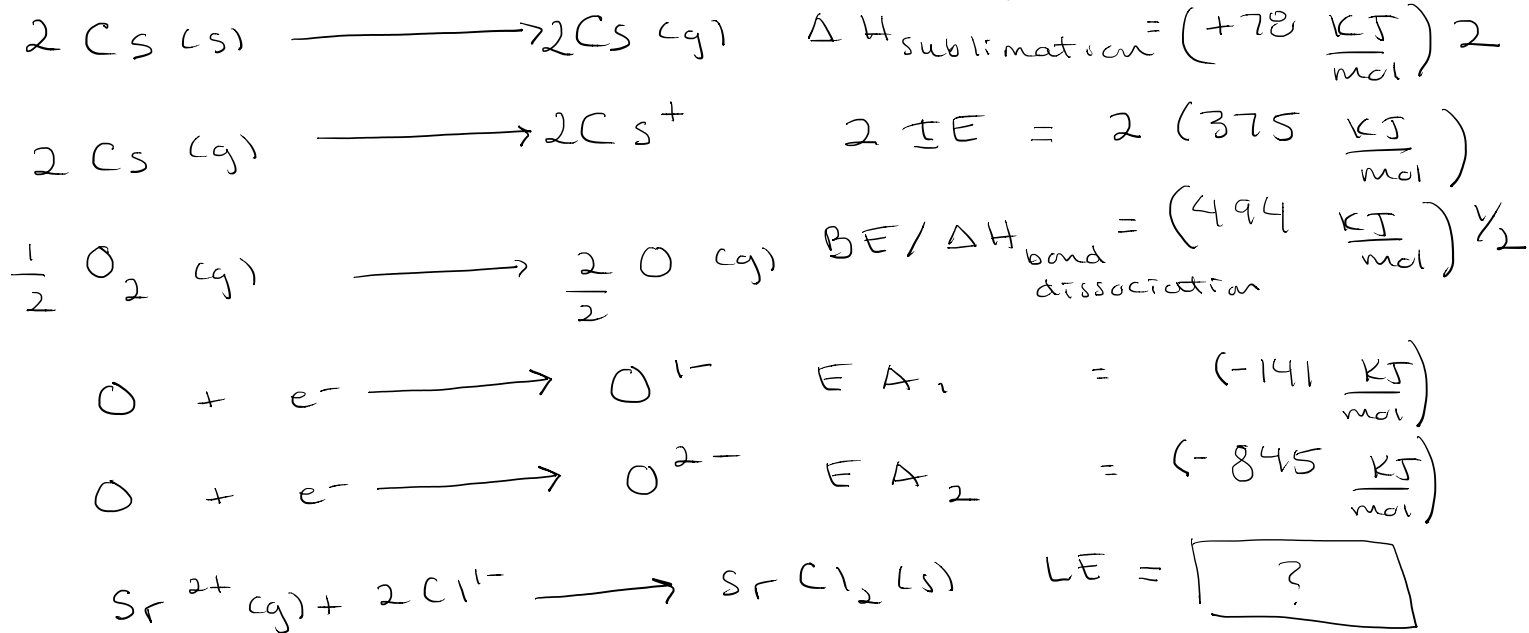 2 Cs (s) ⟶ 2Cs (g) ΔH sublimation = (+78 KJ/mol) 2
2 Cs (g) ⟶ 2Cs⁺ 2 IE = 2 (375 KJ/mol)
1/2 O₂ (g) ⟶ 2/2 O (g) BE/ΔH bond dissociation = (494 KJ/mol) 1/2
O + e⁻ ⟶ O¹⁻ EA₁ = (-141 KJ/mol)
O + e⁻ ⟶ O²⁻ EA₂ = (-845 KJ/mol)
Sr²⁺ (g) + 2Cl¹⁻ ⟶ SrCl₂ (s) LE = ?